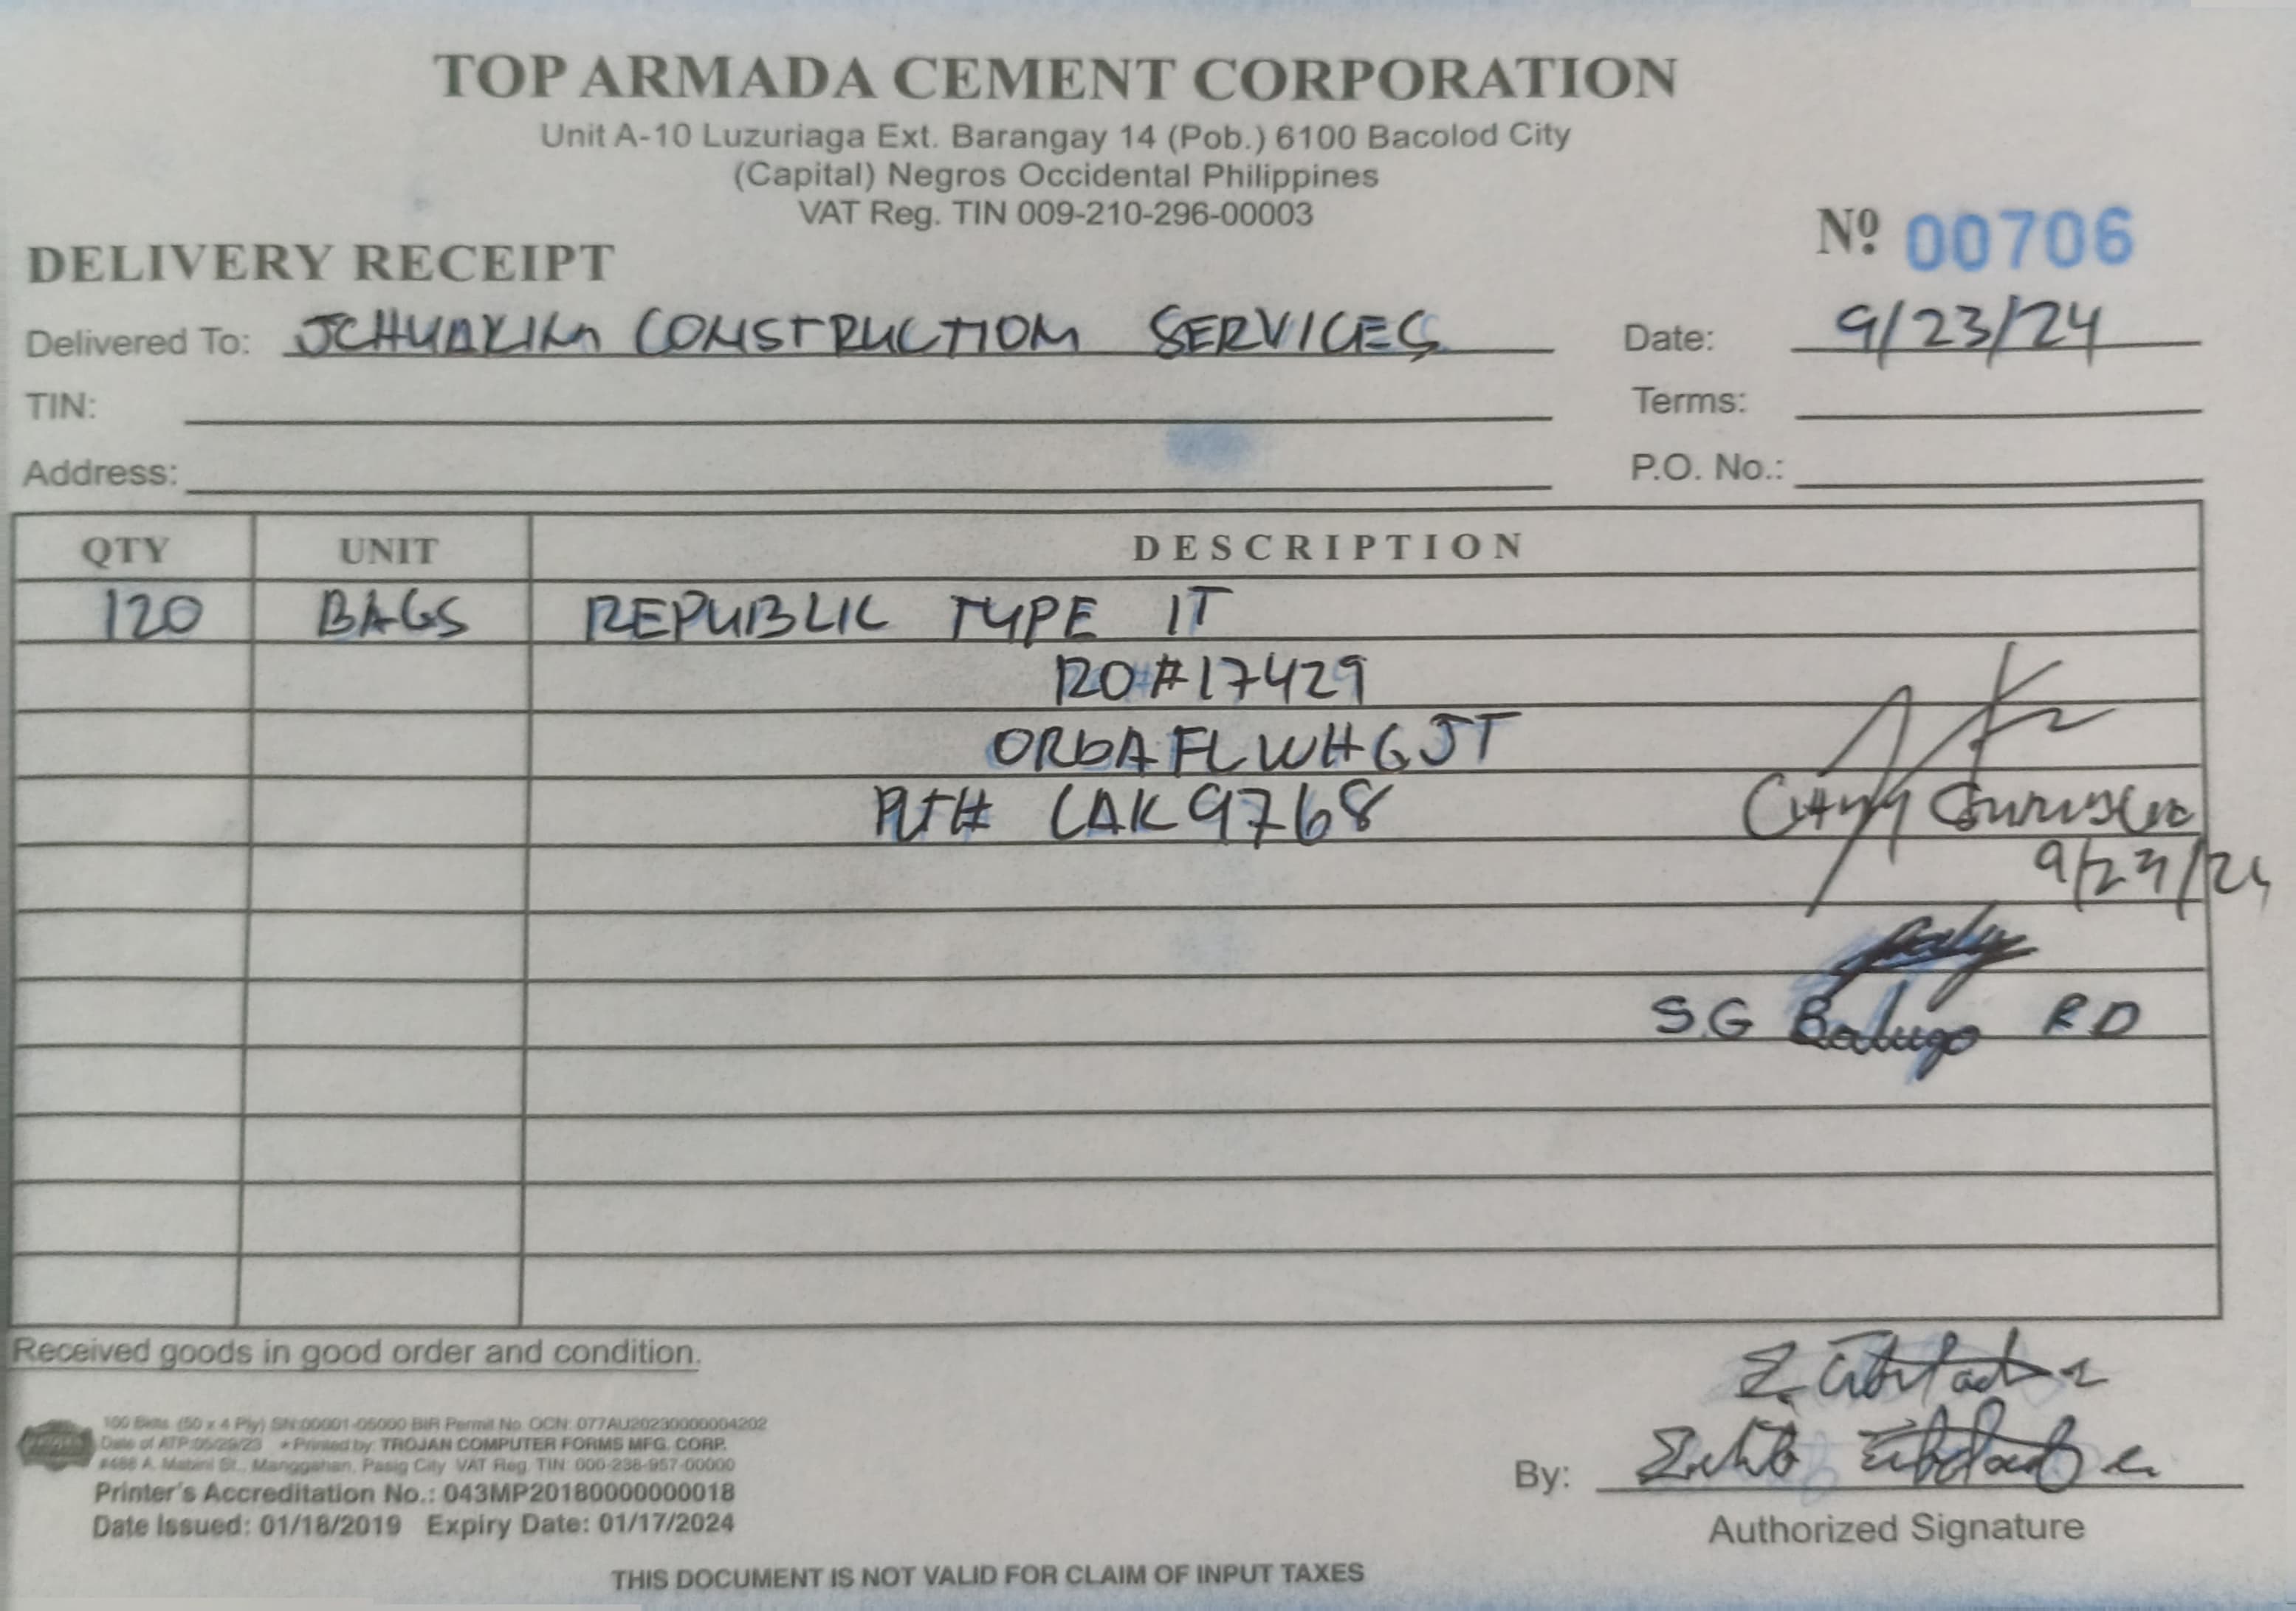 TOP ARMADA CEMENT CORPORATION
Unit A-10 Luzuriaga Ext. Barangay 14 (Pob.) 6100 Bacolod City
(Capital) Negros Occidental Philippines
VAT Reg. TIN 009-210-296-00003
Nº 00706
DELIVERY RECEIPT
Delivered To: JCHUAKIM CONSTRUCTION SERVICES Date: 9/23/24
TIN: Terms:
Address: P.O. No.:
QTY UNIT DESCRIPTION
120 BAGS REPUBLIC TYPE 1T
RO#17429
ORDAFLWHGJT
PLT# CAK9768
9/23/24
SG Balugo RD
Received goods in good order and condition.
100 Bklts. (50 x 4 Ply) SN:00001-05000 BIR Permit No. OCN: 077AU20230000004202
Date of ATP:05/29/23 * Printed by: TROJAN COMPUTER FORMS MFG. CORP.
#486 A. Mabini St., Manggahan, Pasig City VAT Reg. TIN: 000-238-957-00000
Printer's Accreditation No.: 043MP20180000000018
Date Issued: 01/18/2019 Expiry Date: 01/17/2024
By:
Authorized Signature
THIS DOCUMENT IS NOT VALID FOR CLAIM OF INPUT TAXES